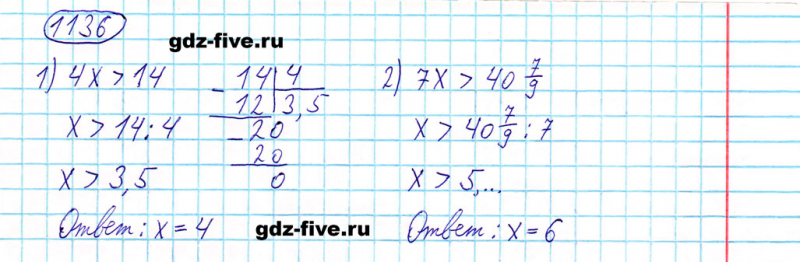 1136
gdz-five.ru
1) 4x > 14
14 | 4
12 | 3,5
20
20
0
x > 14 : 4
x > 3,5
Ответ: x = 4
2) 7x > 40 7/9
x > 40 7/9 : 7
x > 5,...
Ответ: x = 6
gdz-five.ru